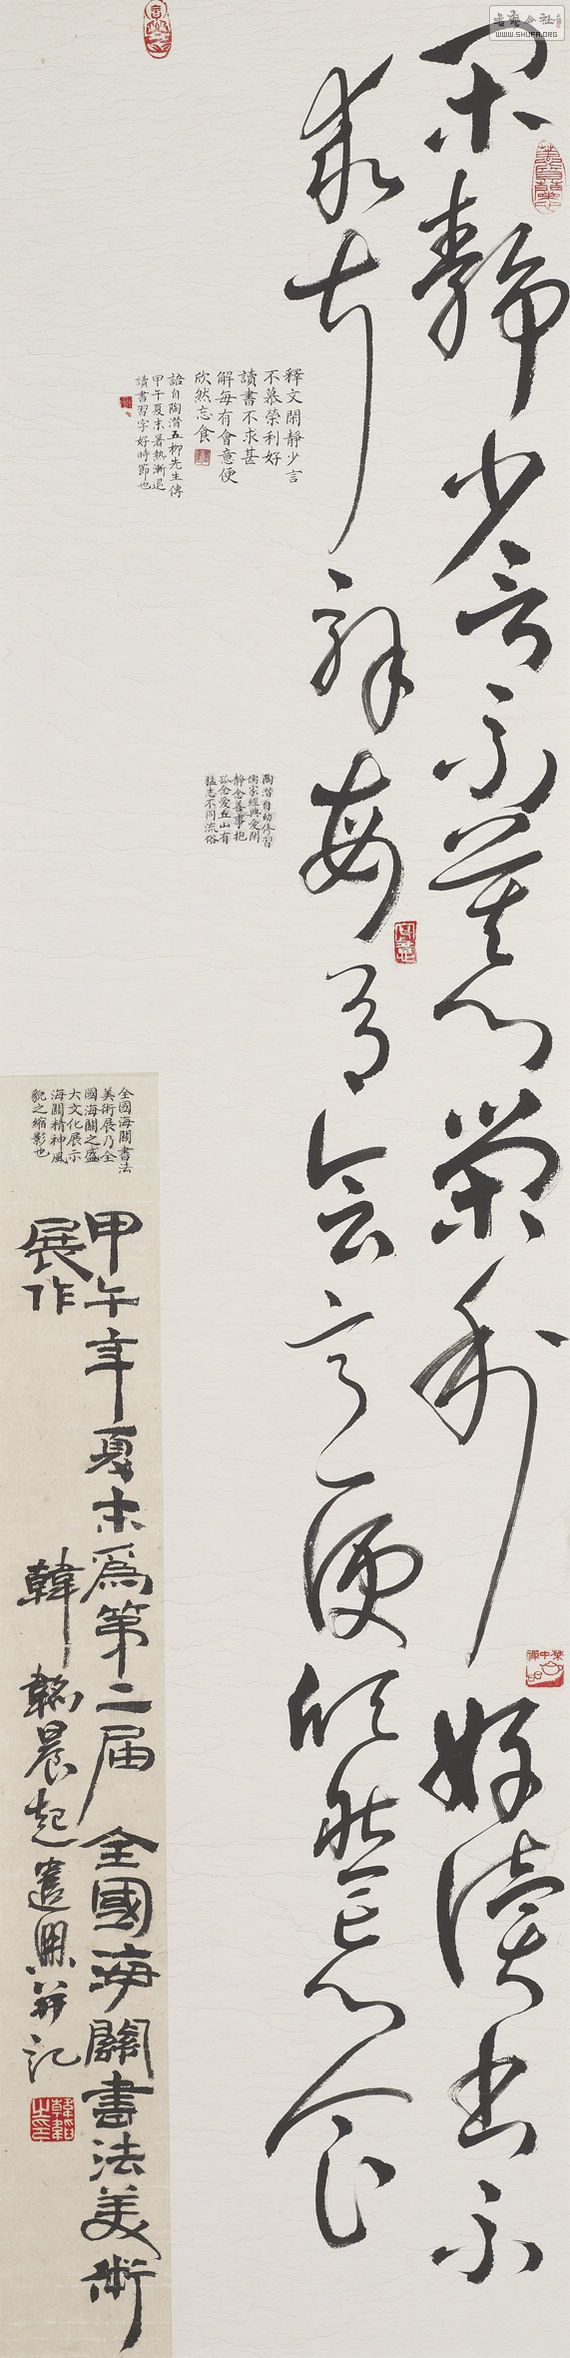 閑靜少言不慕榮利好讀書不
求甚解每有會意便欣然忘食
釋文閑靜少言
不慕榮利好
讀書不求甚
解每有會意便
欣然忘食
語自陶潛五柳先生傳
甲午夏末暑熱漸退
讀書習字好時節也
陶潛自幼修習
儒家經典愛閑
靜念善事抱
孤念愛丘山有
猛志不同流俗
全國海關書法
美術展乃全
國海關之盛
大文化展示
海關精神風
貌之縮影也
甲午年夏末為第二屆全國海關書法美術
展作 韓翰晨起遣興並記
書法公社
WWW.SHUFA.ORG